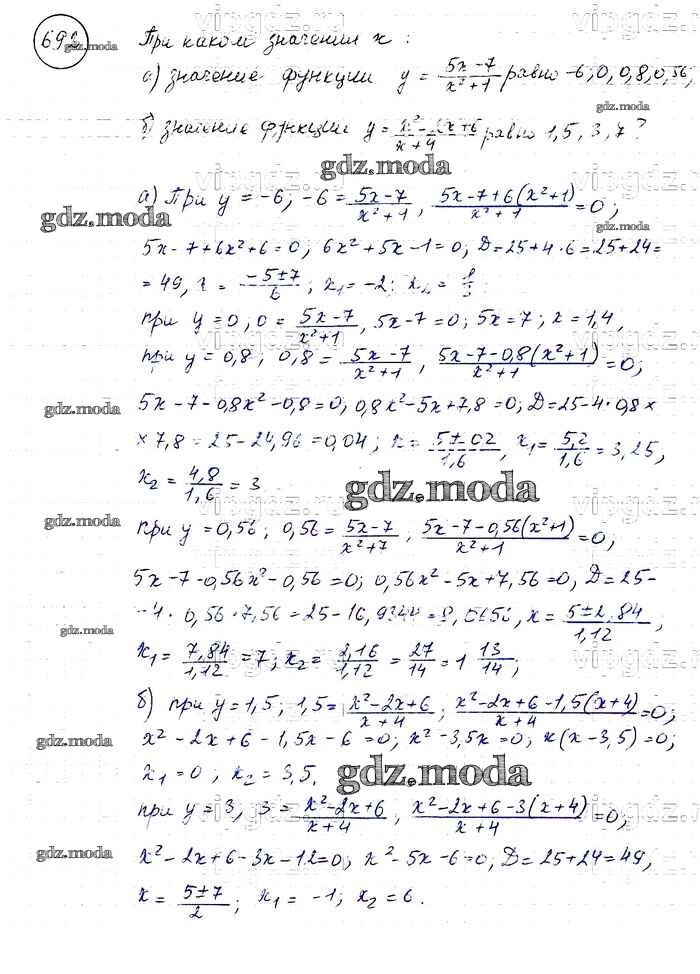 692 При каком значении x:
а) значение функции y = (5x-7)/(x²+1) равно -6; 0; 0,8; 0,56;
б) значение функции y = (x²-2x+6)/(x+4) равно 1,5; 3; 7?
gdz.moda
а) При y = -6; -6 = (5x-7)/(x²+1), (5x-7+6(x²+1))/(x²+1) = 0;
gdz.moda
5x-7+6x²+6=0; 6x²+5x-1=0; D=25+4·6=25+24=
=49, x = (-5±7)/6; x₁=-2; x₂=1/3
при y=0, 0 = (5x-7)/(x²+1), 5x-7=0; 5x=7; x=1,4,
при y=0,8; 0,8 = (5x-7)/(x²+1), (5x-7-0,8(x²+1))/(x²+1) = 0;
gdz.moda
5x-7-0,8x²-0,8=0; 0,8x²-5x+7,8=0; D=25-4·0,8×
×7,8=25-24,96=0,04; x = (5±0,2)/1,6, x₁ = 5,2/1,6 = 3,25,
x₂ = 4,8/1,6 = 3
gdz.moda
gdz.moda
при y=0,56; 0,56 = (5x-7)/(x²+7), (5x-7-0,56(x²+1))/(x²+1) = 0,
5x-7-0,56x²-0,56=0; 0,56x²-5x+7,56=0, D=25-
gdz.moda
-4·0,56·7,56=25-16,9344=8,0656, x = (5±2,84)/1,12,
x₁ = 7,84/1,12 = 7; x₂ = 2,16/1,12 = 27/14 = 1 13/14;
б) при y=1,5; 1,5 = (x²-2x+6)/(x+4); (x²-2x+6-1,5(x+4))/(x+4) = 0;
gdz.moda
x²-2x+6-1,5x-6=0; x²-3,5x=0; x(x-3,5)=0;
x₁=0; x₂=3,5.
gdz.moda
при y=3, 3 = (x²-2x+6)/(x+4), (x²-2x+6-3(x+4))/(x+4) = 0;
gdz.moda
x²-2x+6-3x-12=0; x²-5x-6=0, D=25+24=49,
x = (5±7)/2; x₁=-1; x₂=6.